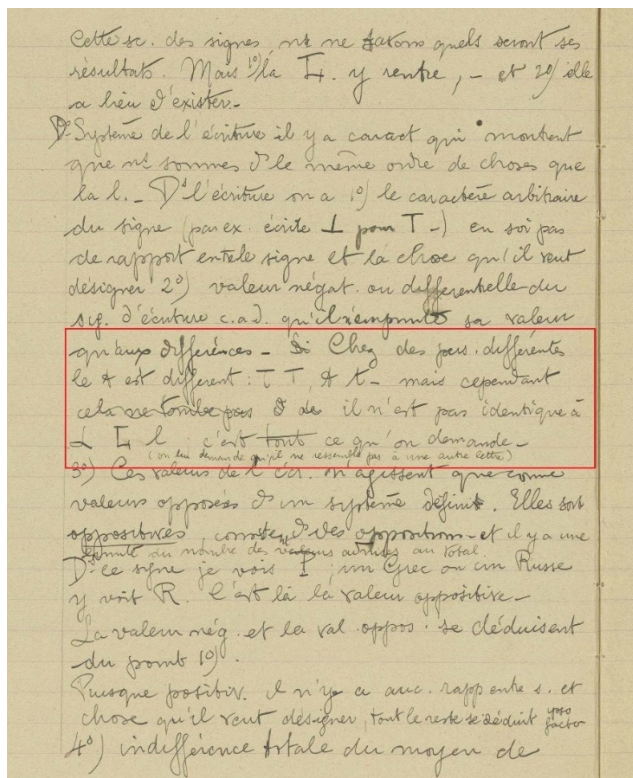 Cette sc. des signes, ns ne savons quels seront ses
résultats. Mais 1º) la L. y rentre, - et 2º) elle
a lieu d'exister -
Ds Système de l'écriture il y a caract qui montrent
que ns sommes ds le même ordre de choses que
la l. - Ds l'écriture on a 1º) le caractère arbitraire
du signe (par ex. écrite ⊥ pour T -) en soi pas
de rapport entre le signe et la chose qu'il veut
désigner 2º) valeur négat. ou différentielle du
sig. d'écriture c.a.d. qu'il n'emprunte sa valeur
qu'aux différences - Si Chez des pers. différentes
le t est différent : T T, t t - mais cependant
cela ne tombe pas il n'est pas identique à
L l c'est tout ce qu'on demande -
(on lui demande qu'il ne ressemble pas à une autre lettre)
3º) Ces valeurs de l'écr. n'agissent que comme
valeurs opposées ds un système défini. Elles sont
oppositives, ds des oppositions - et il y a une
limite du nombre des valeurs au total.
Ds ce signe je vois P ; un Grec ou un Russe
y voit R. C'est là la valeur oppositive -
La valeur nég. et la val. oppos. se déduisent
du point 1º).
Puisque positiv. il n'y a auc. rapp entre s. et
chose qu'il veut désigner, tout le reste se déduit ipso facto
4º) indifférence totale du moyen de